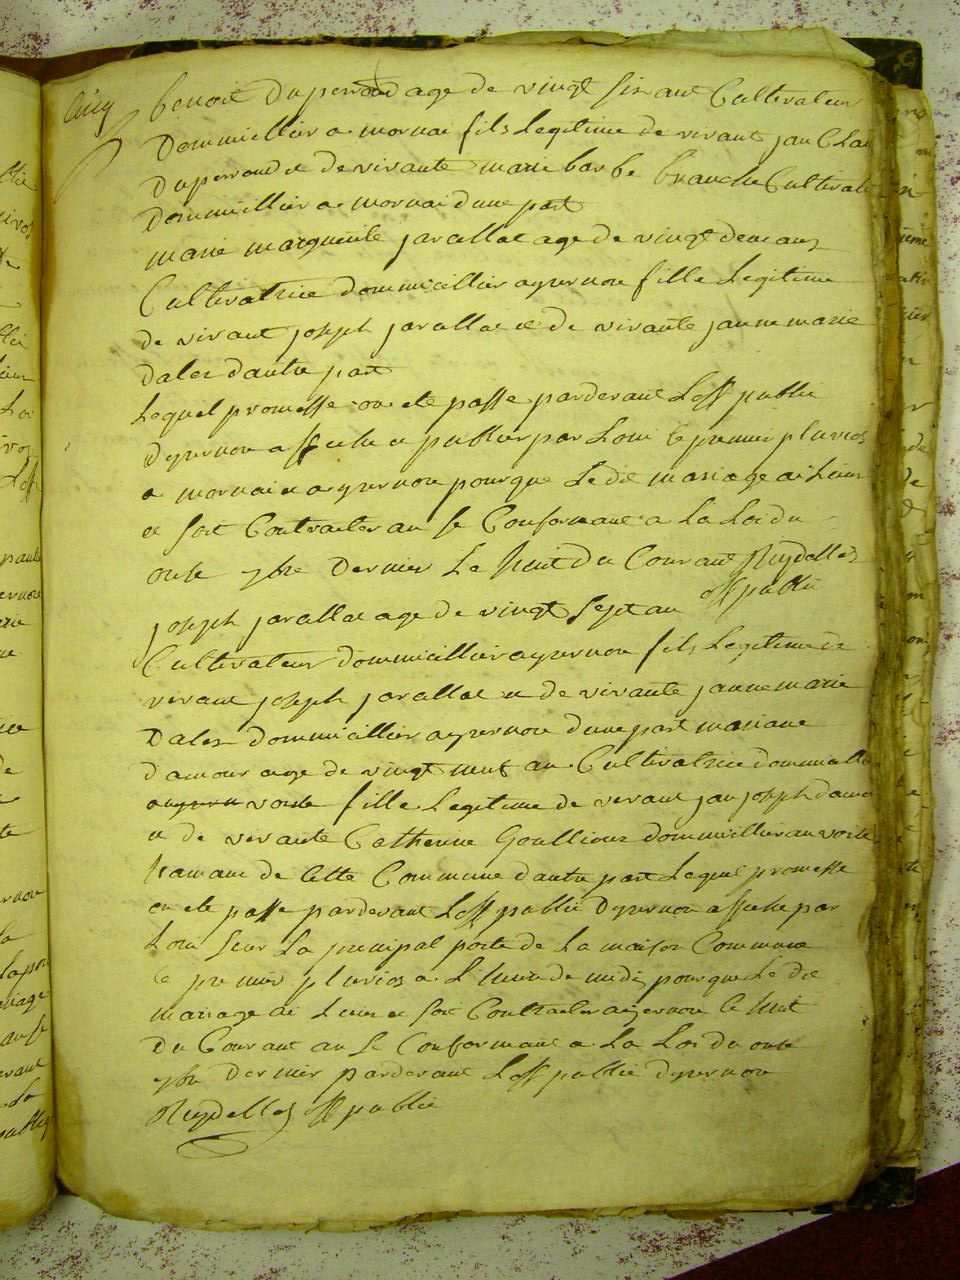 Cinq
benoit Duperroud age de vingt six ans Cultivateur
Dommicillier a mornai fils Legitime de vivant jan Clau
Duperroud et de vivante marie barbe branche Cultivat
Dommicillier a mornai dune part
marie marguerite javallat age de vingt deux ans
Cultivatrice dommicillier a yzernore fille Legitime
de vivant joseph javallat et de vivante janne marie
Dalex dautre part
Lequel promesse on ete passe pardevant Loff publie
Dyzernore affiche et publier par Loui le premier pluvios
a mornai et a yzernore pour que Le dit mariage ai Lieur
et soit Contracter an se Conformant a La Loi du
onse 7bre Dernier Le huit du Courant
off publie
joseph javallat age de vingt sept an
Cultivateur dommicillier a yzernore fils Legitime de
vivant joseph javallat et de vivante janne marie
Dalex dommicillier a yzernore dune part mariane
damour age de vingt neuf an Cultivatrice dommicillie
fille Legitime de vivant jan joseph damou
et de vivante Catherine Goullioux dommicillier au voile
hamaux de Cette Commune dautre part Lequel promesse
on ete passe pardevant Loff publie Dyzernore affiche par
Loui seur La principal porte de La maison Commune
le premier pluvios a L heure de midi pour que Le dit
mariage ai Lieur et soit Contracter a yzernore le huit
Du Courant an se Conformant a La Loi du onse
7bre Dernier pardevant Loff publie dyzernore
off publie